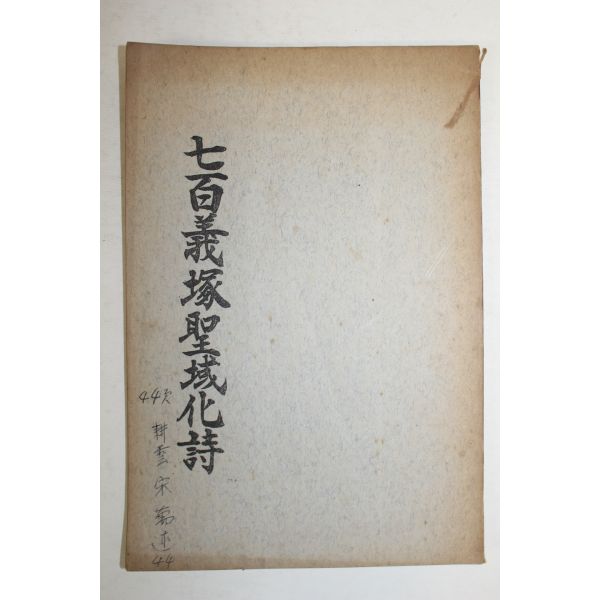 七百義塚聖域化詩
44次
耕雲 宋萬述
44